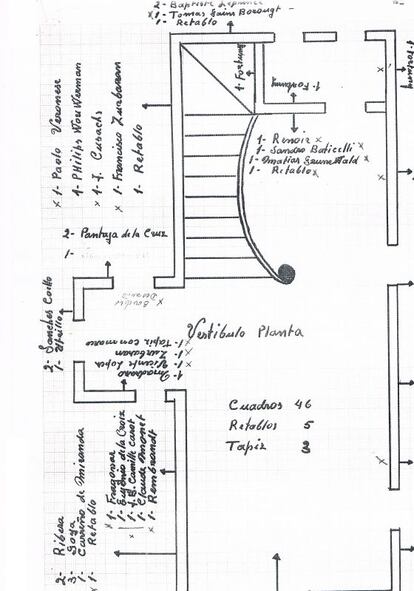 2- Baptiste
1- Tomas Gains Borougt
1- Retablo
1- Fortuny
1- Fortuny
1- Fortuny
x 1- Paolo Veronese
1- Philips WouWerman
x 1- J. Cusachs
x 1- Francisco Zurbaran
1- Retablo
1- Renoir x
1- Sandro Boticelli x
1- Matias GruneWald x
1- Retablo x
2- Pantoja de la Cruz
1-
2- Sanches Coello
1- Utrillo
x Bardin
Vestibulo Planta
1- Tapiz con marco
1- Zurbaran
1- Vicente Lopez
1- Madrazo
Cuadros 46
Retablos 5
Tapiz 3
x 1- Fragonar
1- Eugenio de la Croix
1- J. B. Camille Corot
1- Claude Monet
1- Rembrandt
2- Ribera
3- Goya
1- Carreño de Miranda
1- Retablo